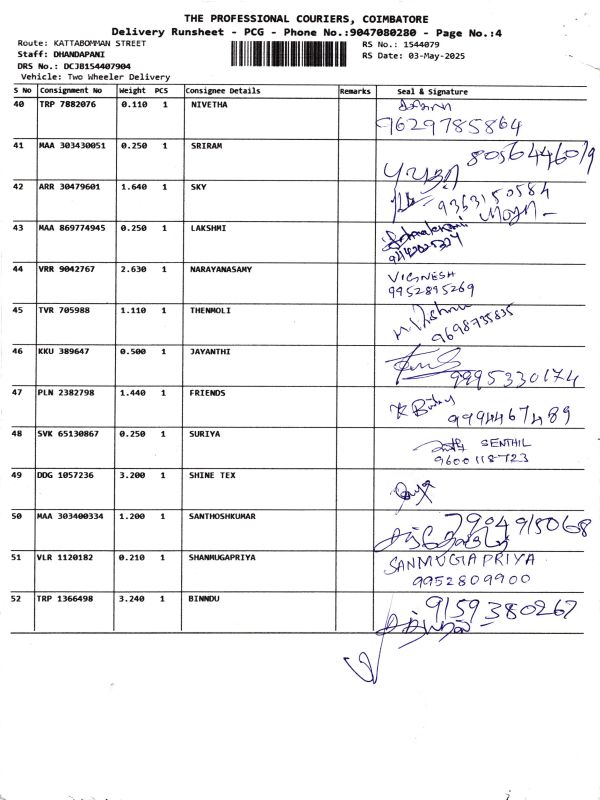 THE PROFESSIONAL COURIERS, COIMBATORE
Delivery Runsheet - PCG - Phone No.:9047080280 - Page No.:4
Route: KATTABOMMAN STREET
RS No.: 1544079
Staff: DHANDAPANI
RS Date: 03-May-2025
DRS No.: DCJB1S4407904
Vehicle: Two Wheeler Delivery
S No Consignment No Weight PCS Consignee Details Remarks Seal & Signature
40 TRP 7882076 0.110 1 NIVETHA
9629785864
41 MAA 303430051 0.250 1 SRIRAM
8056446019
42 ARR 30479601 1.640 1 SKY
9363150584
43 MAA 869774945 0.250 1 LAKSHMI
44 VRR 9042767 2.630 1 NARAYANASAMY VIGNESH
9952895269
45 TVR 705988 1.110 1 THENMOLI
9698735835
46 KKU 389647 0.500 1 JAYANTHI
9995330174
47 PLN 2382798 1.440 1 FRIENDS
9994467489
48 SVK 65130867 0.250 1 SURIYA SENTHIL
9600118723
49 DDG 1057236 3.200 1 SHINE TEX
50 MAA 303400334 1.200 1 SANTHOSHKUMAR 7904915068
51 VLR 1120182 0.210 1 SHANMUGAPRIYA SANMUGIAPRIYA
9952809900
52 TRP 1366498 3.240 1 BINNDU 9159380267